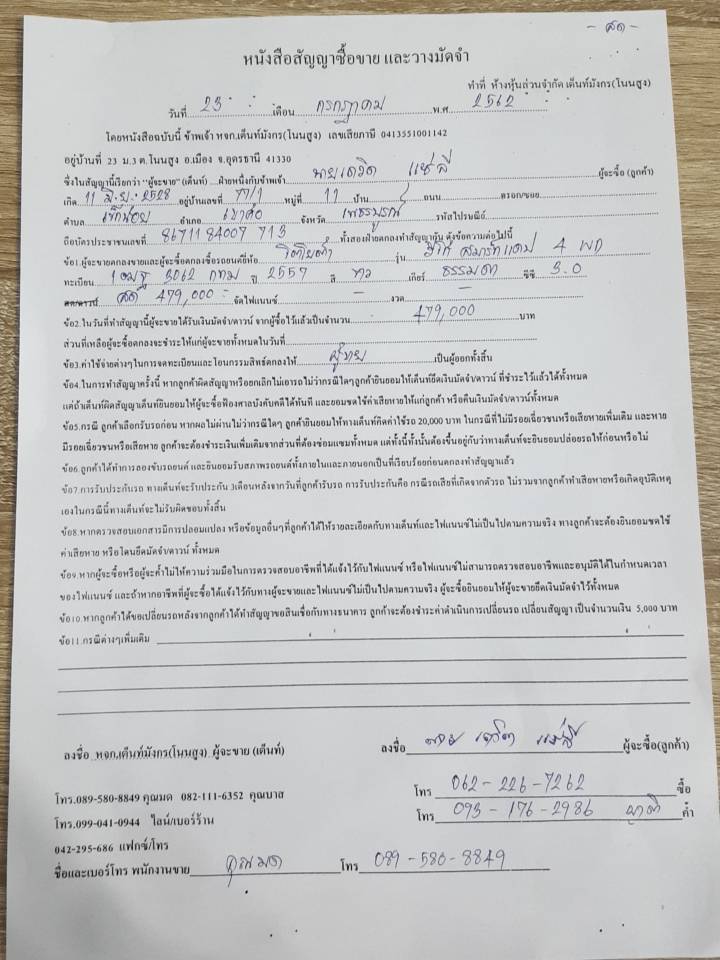 - สด -
หนังสือสัญญาซื้อขาย และวางมัดจำ
ทำที่ ห้างหุ้นส่วนจำกัด เต็นท์มังกร(โนนสูง)
วันที่ 23 เดือน กรกฎาคม พ.ศ 2562
โดยหนังสือฉบับนี้ ข้าพเจ้า หจก.เต็นท์มังกร(โนนสูง) เลขเสียภาษี 0413551001142
อยู่บ้านที่ 23 ม.3 ต.โนนสูง อ.เมือง จ.อุดรธานี 41330
ซึ่งในสัญญานี้เรียกว่า "ผู้จะขาย" (เต็นท์) ฝ่ายหนึ่งกับข้าพเจ้า นายเดวิด แซ่ลี ผู้จะซื้อ (ลูกค้า)
เกิด 11 มิ.ย. 2528 อยู่บ้านเลขที่ 77/1 หมู่ที่ 11 บ้าน ถนน ตรอก/ซอย
ตำบล เข็กน้อย อำเภอ เขาค้อ จังหวัด เพชรบูรณ์ รหัสไปรษณีย์
ถือบัตรประชาชนเลขที่ 8671184007713 ทั้งสองฝ่ายตกลงทำสัญญากัน ดังข้อความต่อไปนี้
ข้อ1.ผู้จะขายตกลงขายและผู้จะซื้อตกลงซื้อรถยนต์ยี่ห้อ โตโยต้า รุ่น วีโก้ สมาร์ทแคป 4 WD
ทะเบียน 1ฒฐ 3062 กทม ปี 2557 สี เทา เกียร์ ธรรมดา ซีซี 3.0
สด/ดาวน์ สด 479,000 จัดไฟแนนซ์ - งวด -
ข้อ2.ในวันที่ทำสัญญานี้ผู้จะขายได้รับเงินมัดจำ/ดาวน์ จากผู้ซื้อไว้แล้วเป็นจำนวน 479,000 บาท
ส่วนที่เหลือผู้จะซื้อตกลงจะชำระให้แก่ผู้จะขายทั้งหมดในวันที่
ข้อ3.ค่าใช้จ่ายต่างๆในการจดทะเบียนและโอนกรรมสิทธ์ตกลงให้ ผู้ขาย เป็นผู้ออกทั้งสิ้น
ข้อ4.ในการทำสัญญาครั้งนี้ หากลูกค้าผิดสัญญาหรือยกเลิกไม่เอารถ ไม่ว่ากรณีใดๆลูกค้ายินยอมให้เต็นท์ยึดเงินมัดจำ/ดาวน์ ที่ชำระไว้แล้วได้ทั้งหมด
แต่ถ้าเต็นท์ผิดสัญญาเต็นท์ยินยอมให้ผู้จะซื้อฟ้องศาลบังคับคดีได้ทันที และยอมชดใช้ค่าเสียหายให้แก่ลูกค้า หรือคืนเงินมัดจำ/ดาวน์ทั้งหมด
ข้อ5.กรณี ลูกค้าเลือกรับรถก่อน หากผลไม่ผ่านไม่ว่ากรณีใดๆ ลูกค้ายินยอมให้ทางเต็นท์คิดค่าใช้รถ 20,000 บาท ในกรณีที่ไม่มีรอยเฉี่ยวชนหรือเสียหายเพิ่มเติม และหาก
มีรอยเฉี่ยวชนหรือเสียหาย ลูกค้าจะต้องชำระเงินเพิ่มเติมจากส่วนที่ต้องซ่อมแซมทั้งหมด แต่ทั้งนี้ทั้งนั้นต้องขึ้นอยู่กับว่าทางเต็นท์จะยินยอมปล่อยรถให้ก่อนหรือไม่
ข้อ6.ลูกค้าได้ทำการลองขับรถยนต์ และยินยอมรับสภาพรถยนต์ทั้งภายในและภายนอกเป็นที่เรียบร้อยก่อนตกลงทำสัญญาแล้ว
ข้อ7.การรับประกันรถ ทางเต็นท์จะรับประกัน 3เดือนหลังจากวันที่ลูกค้ารับรถ การรับประกันคือ กรณีรถเสียที่เกิดจากตัวรถ ไม่รวมจากลูกค้าทำเสียหายหรือเกิดอุบัติเหตุ
เองในกรณีนี้ทางเต็นท์จะไม่รับผิดชอบทั้งสิ้น
ข้อ8.หากตรวจสอบเอกสารมีการปลอมแปลง หรือข้อมูลอื่นๆที่ลูกค้าได้ให้รายละเอียดกับทางเต็นท์และไฟแนนซ์ไม่เป็นไปตามความจริง ทางลูกค้าจะต้องยินยอมชดใช้
ค่าเสียหาย หรือโดนยึดมัดจำ/ดาวน์ ทั้งหมด
ข้อ9.หากผู้จะซื้อหรือผู้จะค้ำไม่ให้ความร่วมมือในการตรวจสอบอาชีพที่ได้แจ้งไว้กับไฟแนนซ์ หรือไฟแนนซ์ไม่สามารถตรวจสอบอาชีพและอนุมัติได้ในกำหนดเวลา
ของไฟแนนซ์ และถ้าหากอาชีพที่ผู้จะซื้อได้แจ้งไว้กับทางผู้จะขายและไฟแนนซ์ไม่เป็นไปตามความจริง ผู้จะซื้อยินยอมให้ผู้จะขายยึดเงินมัดจำไว้ทั้งหมด
ข้อ10.หากลูกค้าได้ขอเปลี่ยนรถหลังจากลูกค้าได้ทำสัญญาขอสินเชื่อกับทางธนาคาร ลูกค้าจะต้องชำระค่าดำเนินการเปลี่ยนรถ เปลี่ยนสัญญา เป็นจำนวนเงิน 5,000 บาท
ข้อ11.กรณีต่างๆเพิ่มเติม
ลงชื่อ หจก.เต็นท์มังกร(โนนสูง) ผู้จะขาย (เต็นท์) ลงชื่อ นาย เดวิด แซ่ลี ผู้จะซื้อ(ลูกค้า)
โทร 062-226-7262 ซื้อ
โทร.089-580-8849 คุณมด 082-111-6352 คุณบาส
โทร 093-176-2986 ญาติ ค้ำ
โทร.099-041-0944 ไลน์/เบอร์ร้าน
042-295-686 แฟกซ์/โทร
ชื่อและเบอร์โทร พนักงานขาย คุณมด โทร 089-580-8849